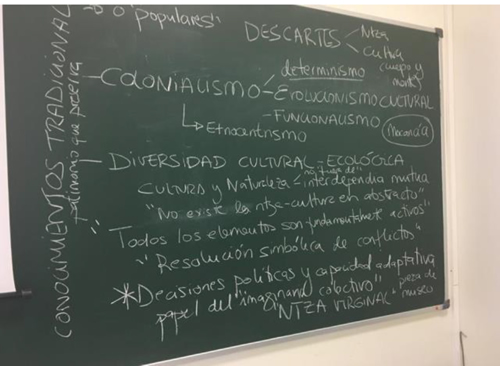 o "populares"
DESCARTES
Ntza
Cultura
(cuerpo y mente)
COLONIALISMO
determinismo
EVOLUCIONISMO CULTURAL
FUNCIONALISMO
Etnocentrismo
DIVERSIDAD CULTURAL - ECOLÓGICA
CULTURA y Naturaleza - interdependia mutua
"No existe la ntza-cultura en abstracto"
Todos los elementos son fundamentalmente activos"
"Resolución simbólica de conflictos"
*Decisiones políticas y capacidad adaptativa
papel del "imaginario colectivo"
"NTZA VIRGINAL"
pieza de museo
CONOCIMIENTOS TRADICIONAL
patrimonio que